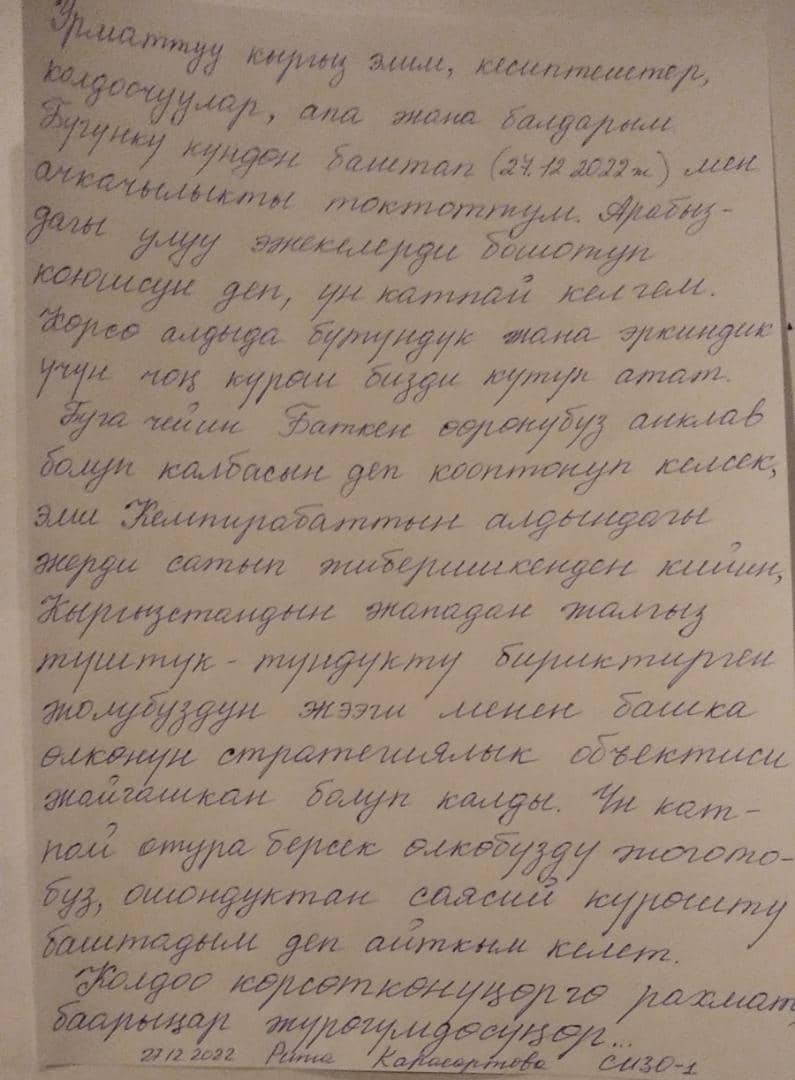 Урматтуу кыргыз элим, кесиптештер,
колдоочуулар, апа жана балдарым
Бүгүнкү күндөн баштап (27.12 2022ж) мен
ачкачылыкты токтоттум. Арабыз-
дагы улуу эжекелерди бошотуп
коюшсун деп, үн катпай келгем.
Көрсө алдыда бүтүндүк жана эркиндик
үчүн чоң күрөш бизди күтүп атат.
Буга чейин Баткен өөрөнүбүз анклав
болуп калбасын деп кооптонуп келсек,
эми Кемпирабаттын алдындагы
жерди сатып жиберишкенден кийин,
Кыргызстандын жападан жалгыз
түштүк - түндүктү бириктирген
жолубуздун жээги менен башка
өлкөнүн стратегиялык объектиси
жайгашкан болуп калды. Үн кат-
пай отура берсек өлкөбүздү жогото-
буз, ошондуктан саясий күрөштү
баштадым деп айткым келет.
Колдоо көрсөткөнүңөргө рахмат,
баарыңар жүрөгүмдөсүңөр...
27.12.2022 Рита Карасартова СИЗО-1